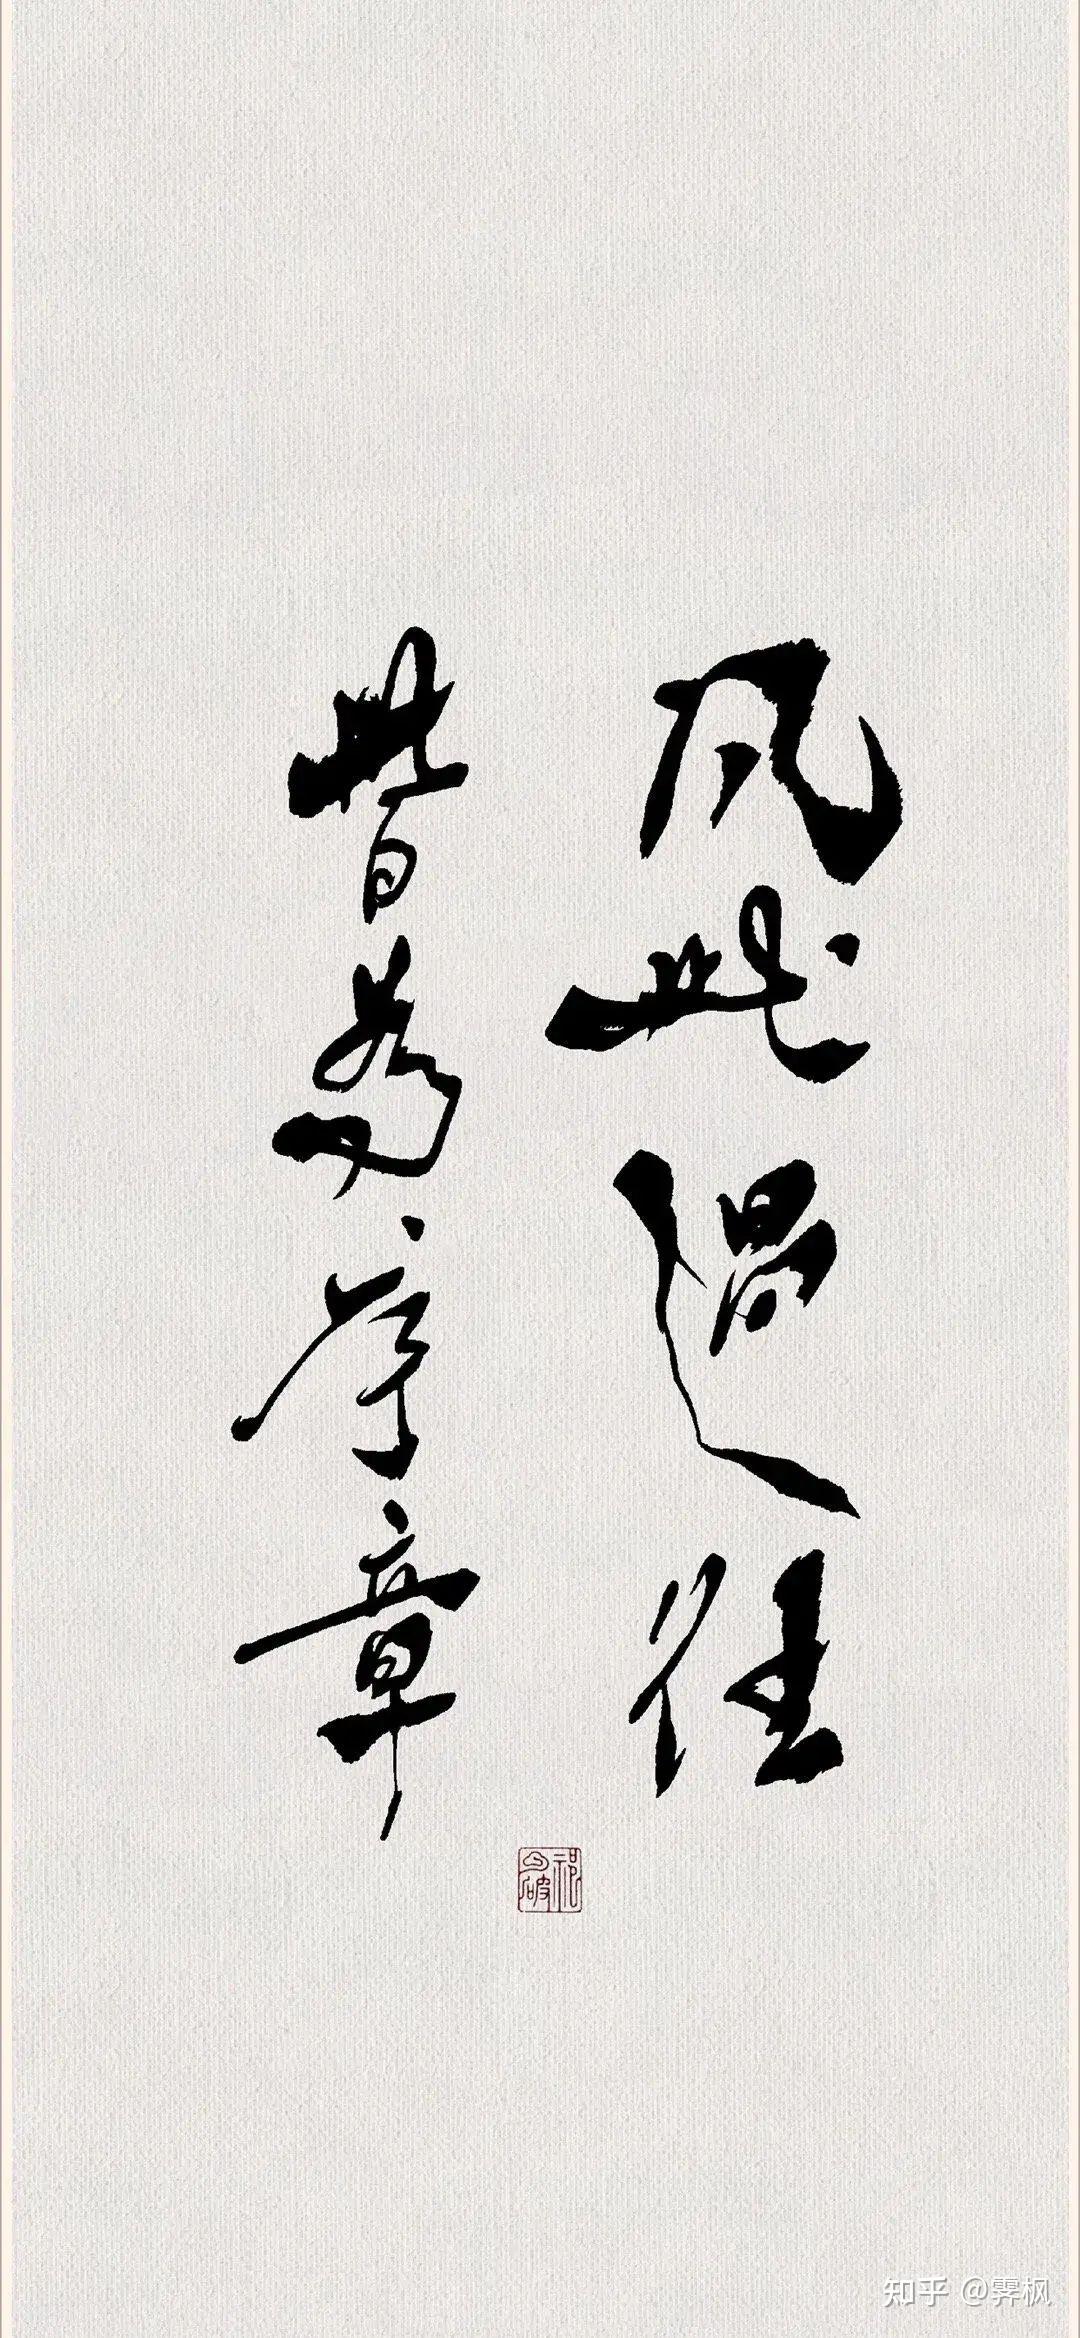 凡此過往
皆為序章
知乎 @霁枫